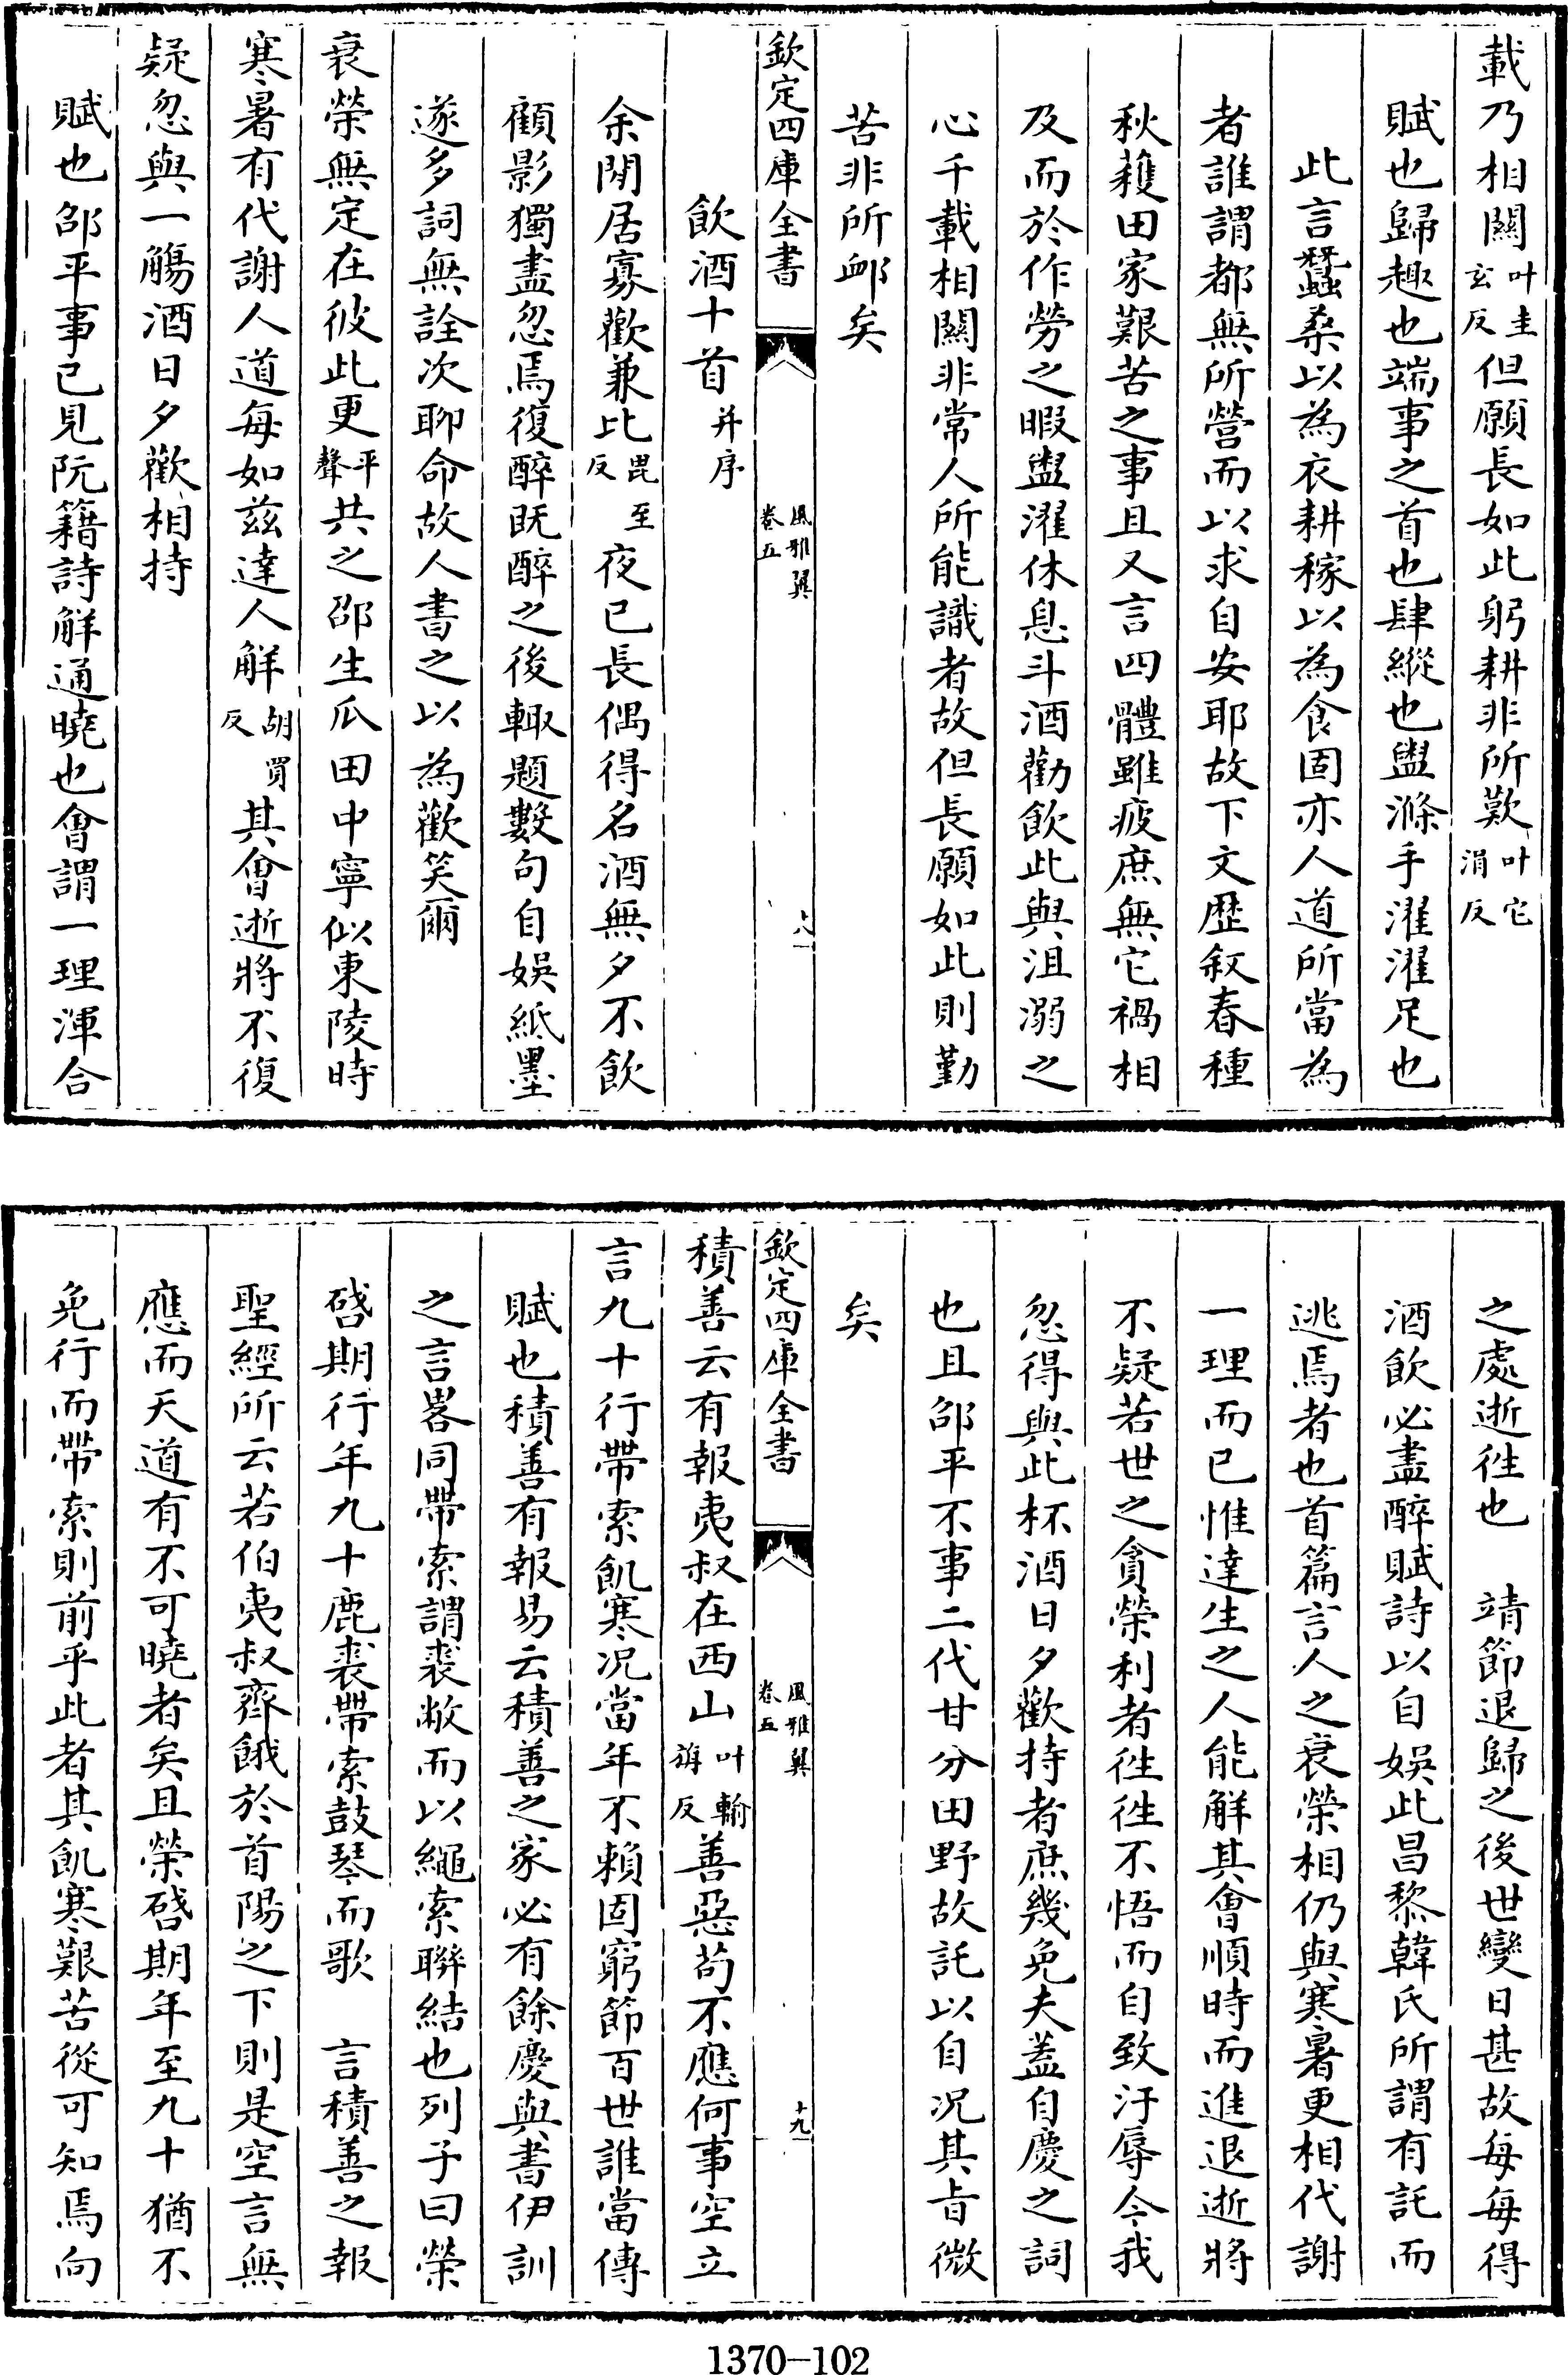 載乃相關叶圭玄反但願長如此躬耕非所歎叶它涓反
賦也歸趣也端事之首也肆縱也盥滌手濯濯足也
此言蠶桑以為衣耕稼以為食固亦人道所當為
者誰謂都無所營而以求自安耶故下文歴叙春種
秋穫田家艱苦之事且又言四體雖疲庶無它禍相
及而於作勞之暇盥濯休息斗酒勸飲此與沮溺之
心千載相關非常人所能識者故但長願如此則勤
苦非所䘏矣
欽定四庫全書
風雅翼
卷五
飲酒十首并序
余閒居寡歡兼比毘至反夜已長偶得名酒無夕不飲
顧影獨盡忽焉復醉既醉之後輒題數句自娛紙墨
遂多詞無詮次聊命故人書之以為歡笑爾
衰榮無定在彼此更平聲共之邵生瓜田中寧似東陵時
寒暑有代謝人道每如茲達人解胡買反其會逝將不復
疑忽與一觴酒日夕歡相持
賦也邵平事已見阮籍詩解通曉也會謂一理渾合
之處逝徃也　靖節退歸之後世變日甚故每每得
酒飲必盡醉賦詩以自娛此昌黎韓氏所謂有託而
逃焉者也首篇言人之衰榮相仍與寒暑更相代謝
一理而已惟達生之人能解其會順時而進退逝將
不疑若世之貪榮利者徃徃不悟而自致汙辱今我
忽得與此杯酒日夕歡持者庶幾免夫葢自慶之詞
也且邵平不事二代甘分田野故託以自况其㫖微
矣
欽定四庫全書
風雅翼
卷五
十九
積善云有報夷叔在西山叶輸旃反善惡苟不應何事空立
言九十行帶索飢寒况當年不賴固窮節百世誰當傳
賦也積善有報易云積善之家必有餘慶與書伊訓
之言畧同帶索謂裘敝而以繩索聨結也列子曰榮
啓期行年九十鹿裘帶索鼓琴而歌　言積善之報
聖經所云若伯夷叔齊餓於首陽之下則是空言無
應而天道有不可曉者矣且榮啓期年至九十猶不
免行而帶索則前乎此者其飢寒艱苦從可知焉向
1370-102